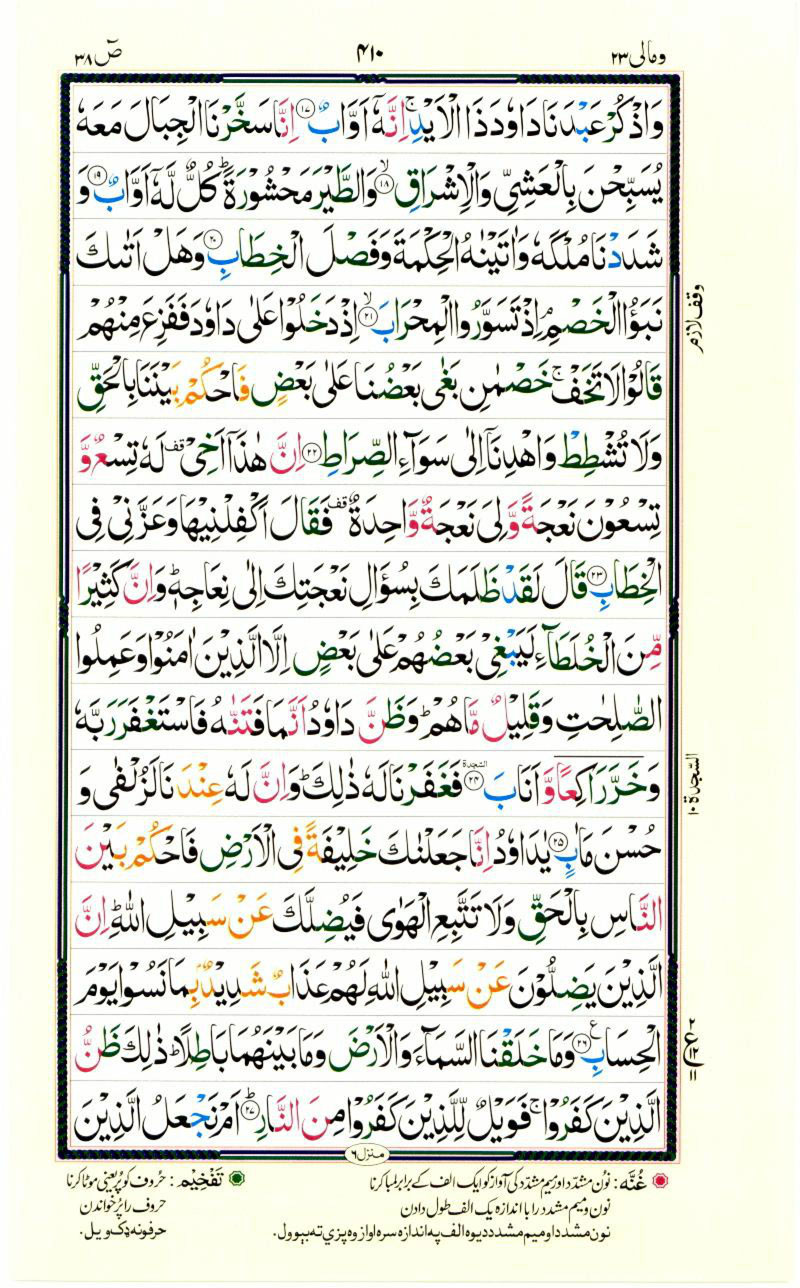 ومالی ۲۳
۴۱۰
صٓ ۳۸
وَاذْكُرْ عَبْدَنَا دَاوٗدَ ذَا الْاَيْدِ ۚ اِنَّهٗۤ اَوَّابٌ ﴿۱۷﴾ اِنَّا سَخَّرْنَا الْجِبَالَ مَعَهٗ
يُسَبِّحْنَ بِالْعَشِيِّ وَالْاِشْرَاقِ ﴿۱۸﴾ۙ وَالطَّيْرَ مَحْشُوْرَةً ؕ كُلٌّ لَّهٗۤ اَوَّابٌ ﴿۱۹﴾ وَ
شَدَدْنَا مُلْكَهٗ وَاٰتَيْنٰهُ الْحِكْمَةَ وَفَصْلَ الْخِطَابِ ﴿۲۰﴾ وَهَلْ اَتٰىكَ
نَبَؤُا الْخَصْمِ ۘ اِذْ تَسَوَّرُوا الْمِحْرَابَ ﴿۲۱﴾ۙ اِذْ دَخَلُوْا عَلٰى دَاوٗدَ فَفَزِعَ مِنْهُمْ
قَالُوْا لَا تَخَفْ ۚ خَصْمٰنِ بَغٰى بَعْضُنَا عَلٰى بَعْضٍ فَاحْكُمْ بَيْنَنَا بِالْحَقِّ
وَلَا تُشْطِطْ وَاهْدِنَاۤ اِلٰى سَوَآءِ الصِّرَاطِ ﴿۲۲﴾ اِنَّ هٰذَاۤ اَخِيْ قف لَهٗ تِسْعٌ وَّ
تِسْعُوْنَ نَعْجَةً وَّلِيَ نَعْجَةٌ وَّاحِدَةٌ قف فَقَالَ اَكْفِلْنِيْهَا وَعَزَّنِيْ فِي
الْخِطَابِ ﴿۲۳﴾ قَالَ لَقَدْ ظَلَمَكَ بِسُؤَالِ نَعْجَتِكَ اِلٰى نِعَاجِهٖ ؕ وَاِنَّ كَثِيْرًا
مِّنَ الْخُلَطَآءِ لَيَبْغِيْ بَعْضُهُمْ عَلٰى بَعْضٍ اِلَّا الَّذِيْنَ اٰمَنُوْا وَعَمِلُوا
الصّٰلِحٰتِ وَقَلِيْلٌ مَّا هُمْ ؕ وَظَنَّ دَاوٗدُ اَنَّمَا فَتَنّٰهُ فَاسْتَغْفَرَ رَبَّهٗ
وَخَرَّ رَاكِعًا وَّ اَنَابَ ﴿۲۴﴾ السجدة فَغَفَرْنَا لَهٗ ذٰلِكَ ؕ وَاِنَّ لَهٗ عِنْدَنَا لَزُلْفٰى وَ
حُسْنَ مَاٰبٍ ﴿۲۵﴾ يٰدَاوٗدُ اِنَّا جَعَلْنٰكَ خَلِيْفَةً فِي الْاَرْضِ فَاحْكُمْ بَيْنَ
النَّاسِ بِالْحَقِّ وَلَا تَتَّبِعِ الْهَوٰى فَيُضِلَّكَ عَنْ سَبِيْلِ اللّٰهِ ؕ اِنَّ
الَّذِيْنَ يَضِلُّوْنَ عَنْ سَبِيْلِ اللّٰهِ لَهُمْ عَذَابٌ شَدِيْدٌۢ بِمَا نَسُوْا يَوْمَ
الْحِسَابِ ﴿۲۶﴾ ع وَمَا خَلَقْنَا السَّمَآءَ وَالْاَرْضَ وَمَا بَيْنَهُمَا بَاطِلًا ؕ ذٰلِكَ ظَنُّ
الَّذِيْنَ كَفَرُوْا ۚ فَوَيْلٌ لِّلَّذِيْنَ كَفَرُوْا مِنَ النَّارِ ﴿۲۷﴾ؕ اَمْ نَجْعَلُ الَّذِيْنَ
وقف لازم
السجدة ۱۰
منزل ۶
غُنّه: نون مشدّد اور میم مشدّد کی آواز کو ایک الف کے برابر لمبا کرنا
نون و میم مشدد را با اندازه یک الف طول دادن
نون مشدد او میم مشدد دیوه الف په اندازه سره اواز وه پزي ته بېوول.
تَفْخِیْم: حُروف کو پُر یعنی موٹا کرنا
حروف را پُر خواندن
حرفونه ډک ویل.